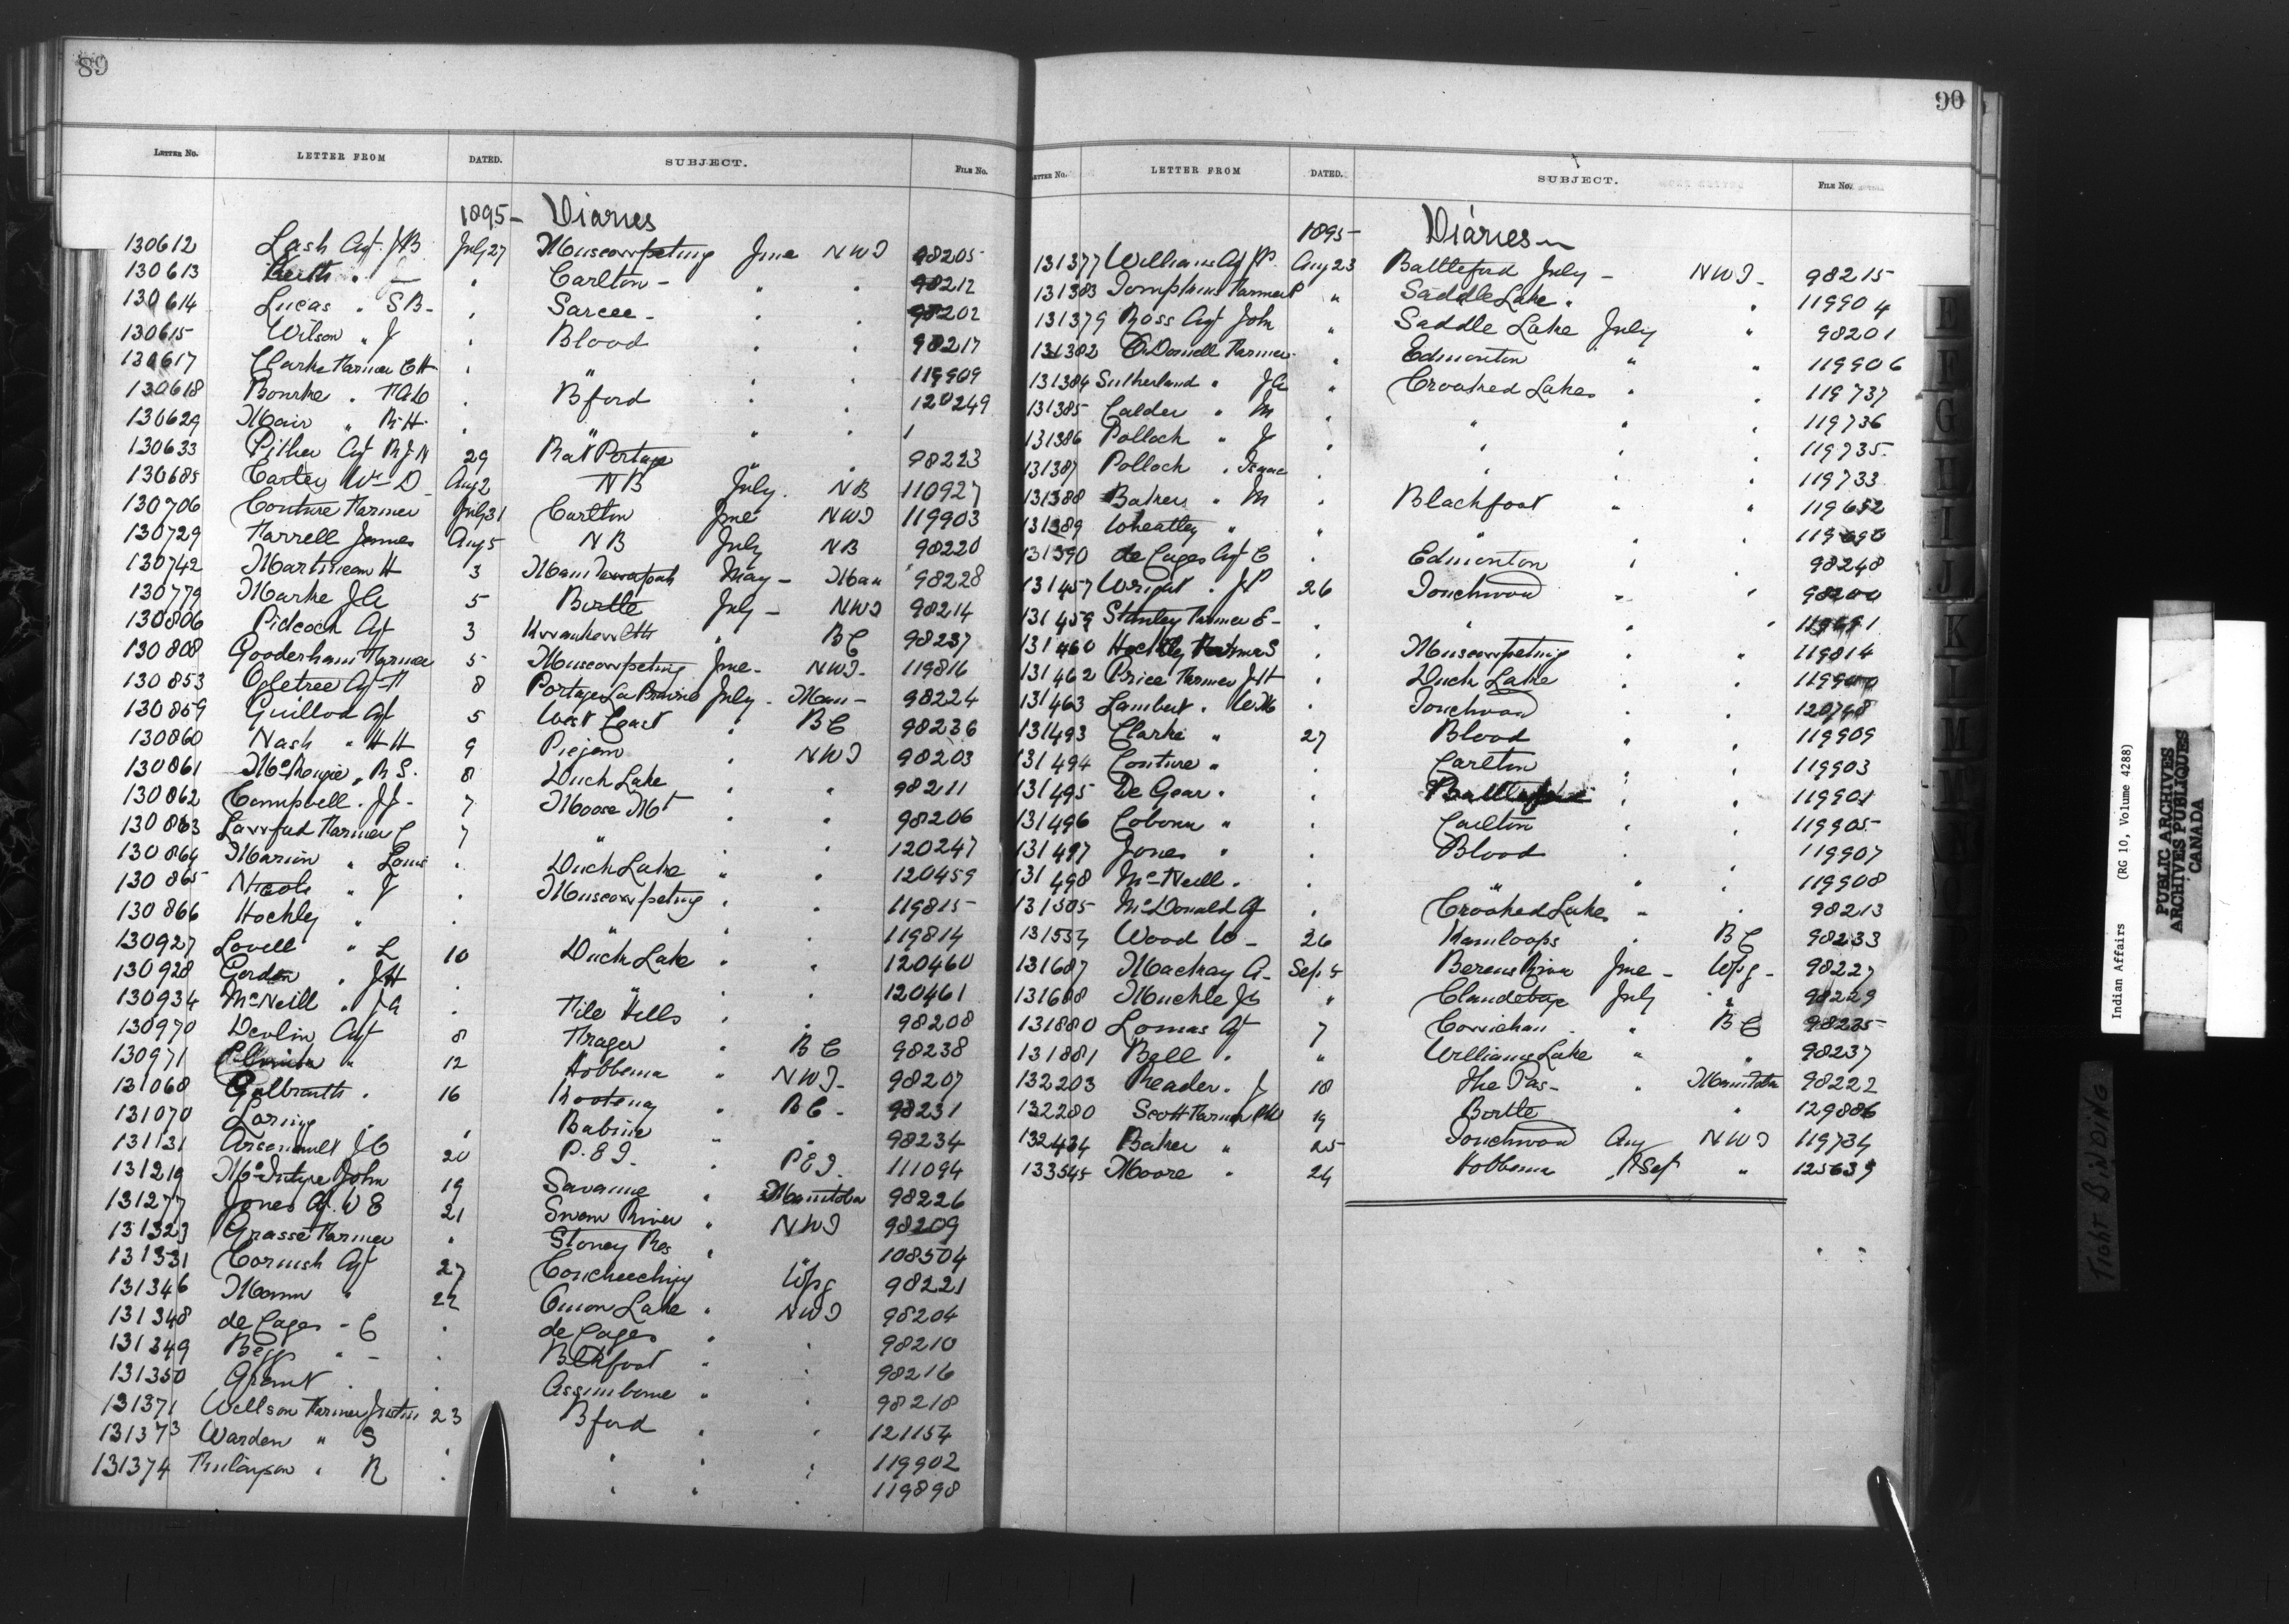 89
LETTER NO. LETTER FROM DATED. SUBJECT. FILE No.
1895 - Diaries
130612 Lash Agt. J.B. July 27 Muscowpetung June NWT 98205
130613 Keith " — " Carlton - " " 98212
130614 Lucas " S B - " Sarcee - " " 98202
130615 Wilson " J " Blood " " 98217
130617 Clarke Farmer C H " " " " 119909
130618 Bourke " " Bford " " 120249
130629 Mair " R.H. " " " " 1
130633 Pither Agt R J N 29 Rat Portage " " 98223
130685 Carter Wm D Aug 2 N B July. NB 110927
130706 Couture Farmer July 31 Carlton June NWT 119903
130729 Farrell James Aug 5 N B July NB 98220
130742 Martineau H 3 Manitowapah May - Man 98228
130779 Markle J A 5 Birtle July - NWT 98214
130806 Pidcock Agt 3 Kwawkewlth " BC 98237
130808 Gooderham Farmer 5 Muscowpetung June - NWT. 119816
130853 Ogletree Agt F 8 Portage La Prairie July - Man - 98224
130859 Guillod Agt 5 West Coast " BC 98236
130860 Nash " H H 9 Piegan " NWT 98203
130861 McKenzie " R S. 8 Duck Lake " " 98211
130862 Campbell . J J - 7 Moose Mt " " 98206
130863 Lawford Farmer C 7 " " " 120247
130864 Marion " Louis " Duck Lake " " 120459
130865 Nicols " J " Muscowpetung " " 119815
130866 Hockley " " " " " 119814
130927 Lovell " L 10 Duck Lake " " 120460
130928 Gordon " J H " " " " 120461
130934 McNeill " J A " File Hills " " 98208
130970 Devlin Agt 8 Fraser " B C 98238
130971 " 12 Hobbema " NWT. 98207
131068 Galbraith . 16 Kootenay " BC - 98231
131070 Loring " " Babine " " 98234
131131 Arsenault J O 20 P.E I. " P E I. 111094
131219 McIntyre John 19 Savanne " Manitoba 98226
131277 Jones Agt. W E 21 Swan River " NWT 98209
131323 Grasse Farmer " Stoney Res " " 108504
131331 Cornish Agt 27 Coucheeching Wpg 98221
131346 Mann " 22 Onion Lake " NWT 98204
131348 de Cazes - C " de Cazes " " 98210
131349 Begg " - " Bkfoot " " 98216
131350 Grant " " Assiniboine " " 98218
131371 Wellson Farmer 23 Bford " " 121154
131373 Warden " S " " " " 119902
131374 Finlayson " R " " " " 119898
90
LETTER NO. LETTER FROM DATED. SUBJECT. FILE No.
1895 - Diaries
131377 Williams Agt P. Aug 23 Battleford July - NWT - 98215
131383 Tompkins Farmer P " Saddle Lake " " 119904
131379 Ross Agt John " Saddle Lake July " 98201
131382 O'Donnell Farmer " Edmonton " " 119906
131384 Sutherland " J A " Crooked Lakes " " 119737
131385 Calder " M " " " " 119736
131386 Pollock " J " " " " 119735
131387 Pollock " Isaac " " " " 119733
131388 Baker " M " Blackfoot " " 119652
131389 Wheatley " " " " "
131390 de Cazes Agt C " Edmonton " " 98248
131457 Wright . J P 26 Touchwood " " 98200
131459 Stanley Farmer E - " " " "
131460 Hockley Farmer S " Muscowpetung " " 119814
131462 Price Farmer J H " Duck Lake " " 119900
131463 Lambert " W M " Touchwood " " 120748
131493 Clarke " 27 Blood " " 119909
131494 Couture " " Carlton " " 119903
131495 De Gear " " Battleford " " 119901
131496 Coburn " " Carlton " " 119905
131497 Jones " " Blood " " 119907
131498 McNeill " " " " " 119908
131505 McDonald Agt " Crooked Lakes " " 98213
131554 Wood W - 26 Kamloops " B C 98233
131687 Mackay A - Sep. 5 Berens River June - Wpg - 98227
131688 Muckle Js " Clandeboye July " 98229
131880 Lomas Agt 7 Cowichan " B C 98235
131881 Bell " " Williams Lake " " 98237
132203 Reader . J 18 The Pas - " Manitoba 98222
132280 Scott Farmer 19 Birtle " 129886
132434 Baker " 25 Touchwood Aug NWT 119734
133545 Moore " 24 Hobbema Sep " 125639
E
F
G
H
I
J
K
L
M
Indian Affairs (RG 10, Volume 4288)
PUBLIC ARCHIVES
ARCHIVES PUBLIQUES
CANADA
TIGHT BINDING